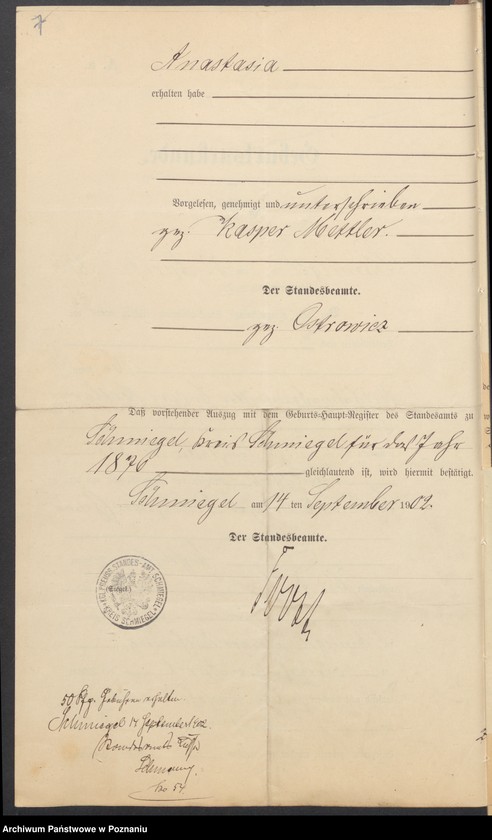 7
Anastasia
erhalten habe
Vorgelesen, genehmigt und unterschrieben
gez. Kasper Mettler.
Der Standesbeamte.
gez. Ostrowicz
Daß vorstehender Auszug mit dem Geburts-Haupt-Register des Standesamts zu
Schmiegel, Kreis Schmiegel für das Jahr
1876 gleichlautend ist, wird hiermit bestätigt.
Schmiegel am 14 ten September 1902.
Der Standesbeamte.
(Siegel.)
KREIS SCHMIEGEL
50 Pfg. Gebühren erhalten
Schmiegel 14 September 1902
Standesamts
Archiwum Państwowe w Poznaniu